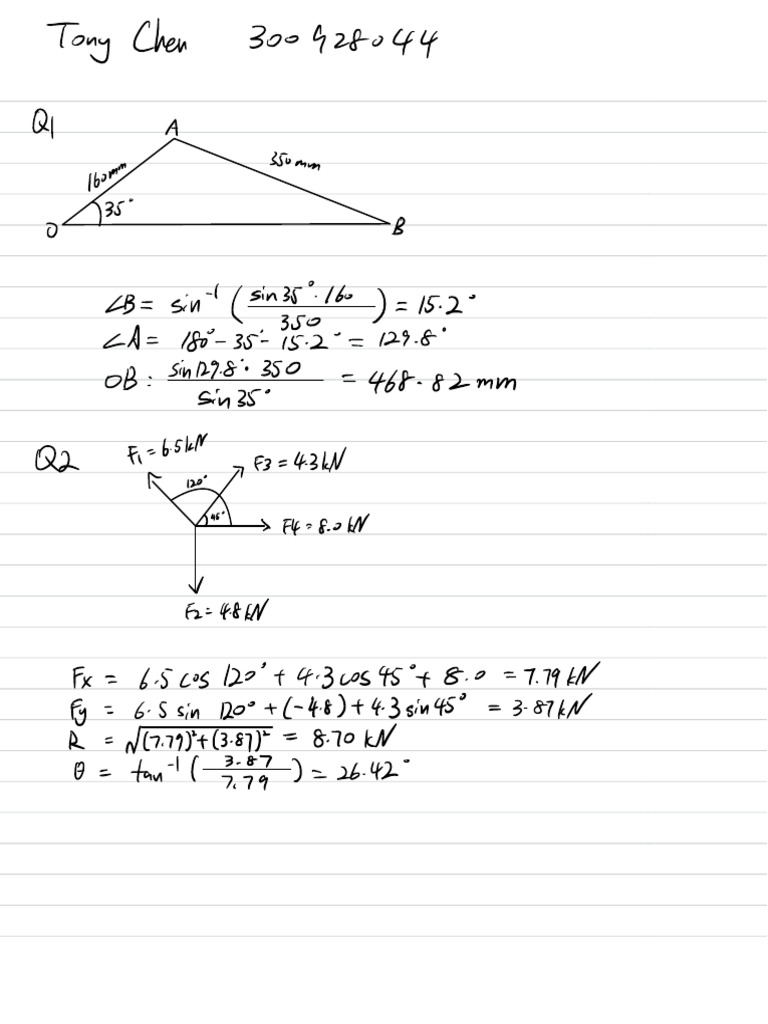 Tony Chen 300928044
Q1
A
160mm
350mm
35°
O
B
∠B = sin⁻¹ (sin35°·160 / 350) = 15.2°
∠A = 180° - 35° - 15.2° = 129.8°
OB : sin129.8° · 350 / sin35° = 468.82mm
Q2
F1 = 6.5kN
F3 = 4.3kN
120°
45°
F4 = 8.0kN
F2 = 4.8kN
Fx = 6.5 cos 120° + 4.3 cos 45° + 8.0 = 7.79 kN
Fy = 6.5 sin 120° + (-4.8) + 4.3 sin 45° = 3.87kN
R = √(7.79)² + (3.87)² = 8.70 kN
θ = tan⁻¹ (3.87 / 7.79) = 26.42°